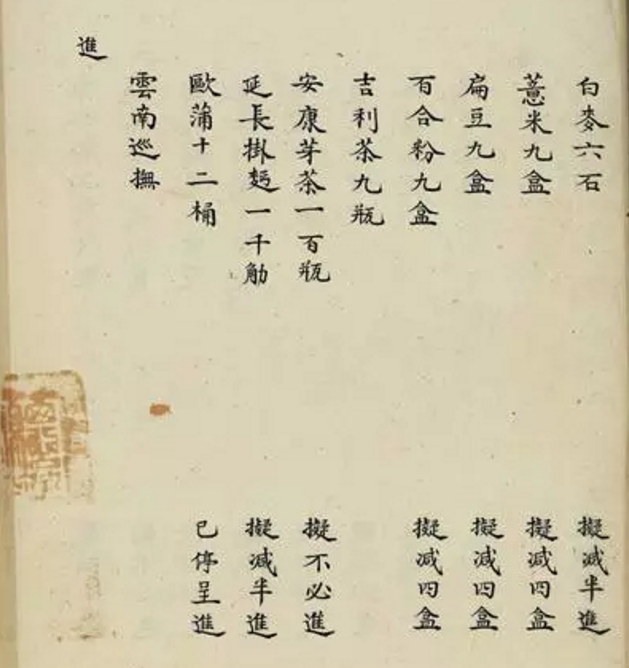 白麥六石 擬減半進
薏米九盒 擬減四盒
扁豆九盒 擬減四盒
百合粉九盒 擬減四盒
吉利茶九瓶
安康芽茶一百瓶 擬不必進
延長掛麪一千觔 擬減半進
歐蒲十二桶 已停呈進
雲南巡撫
進